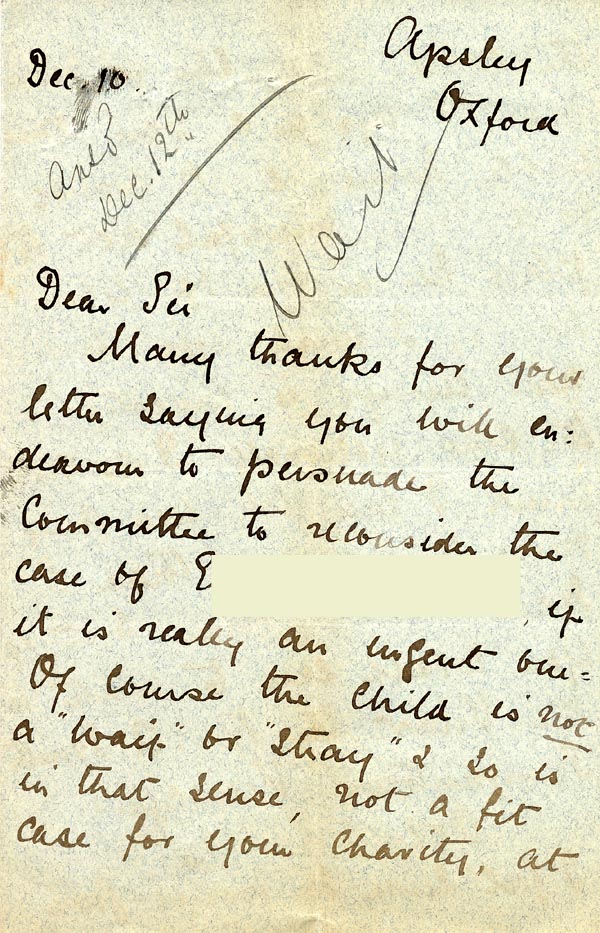 Apsley
Oxford
Dec. 10.
Ansd
Dec. 12th
Wait
Dear Sir
Many thanks for your
letter saying you will en:
deavour to persuade the
Committee to reconsider the
case of E , if
it is really an urgent one=
Of course the child is not
a "waif" or "stray" & so is
in that sense, not a fit
case for your charity, at